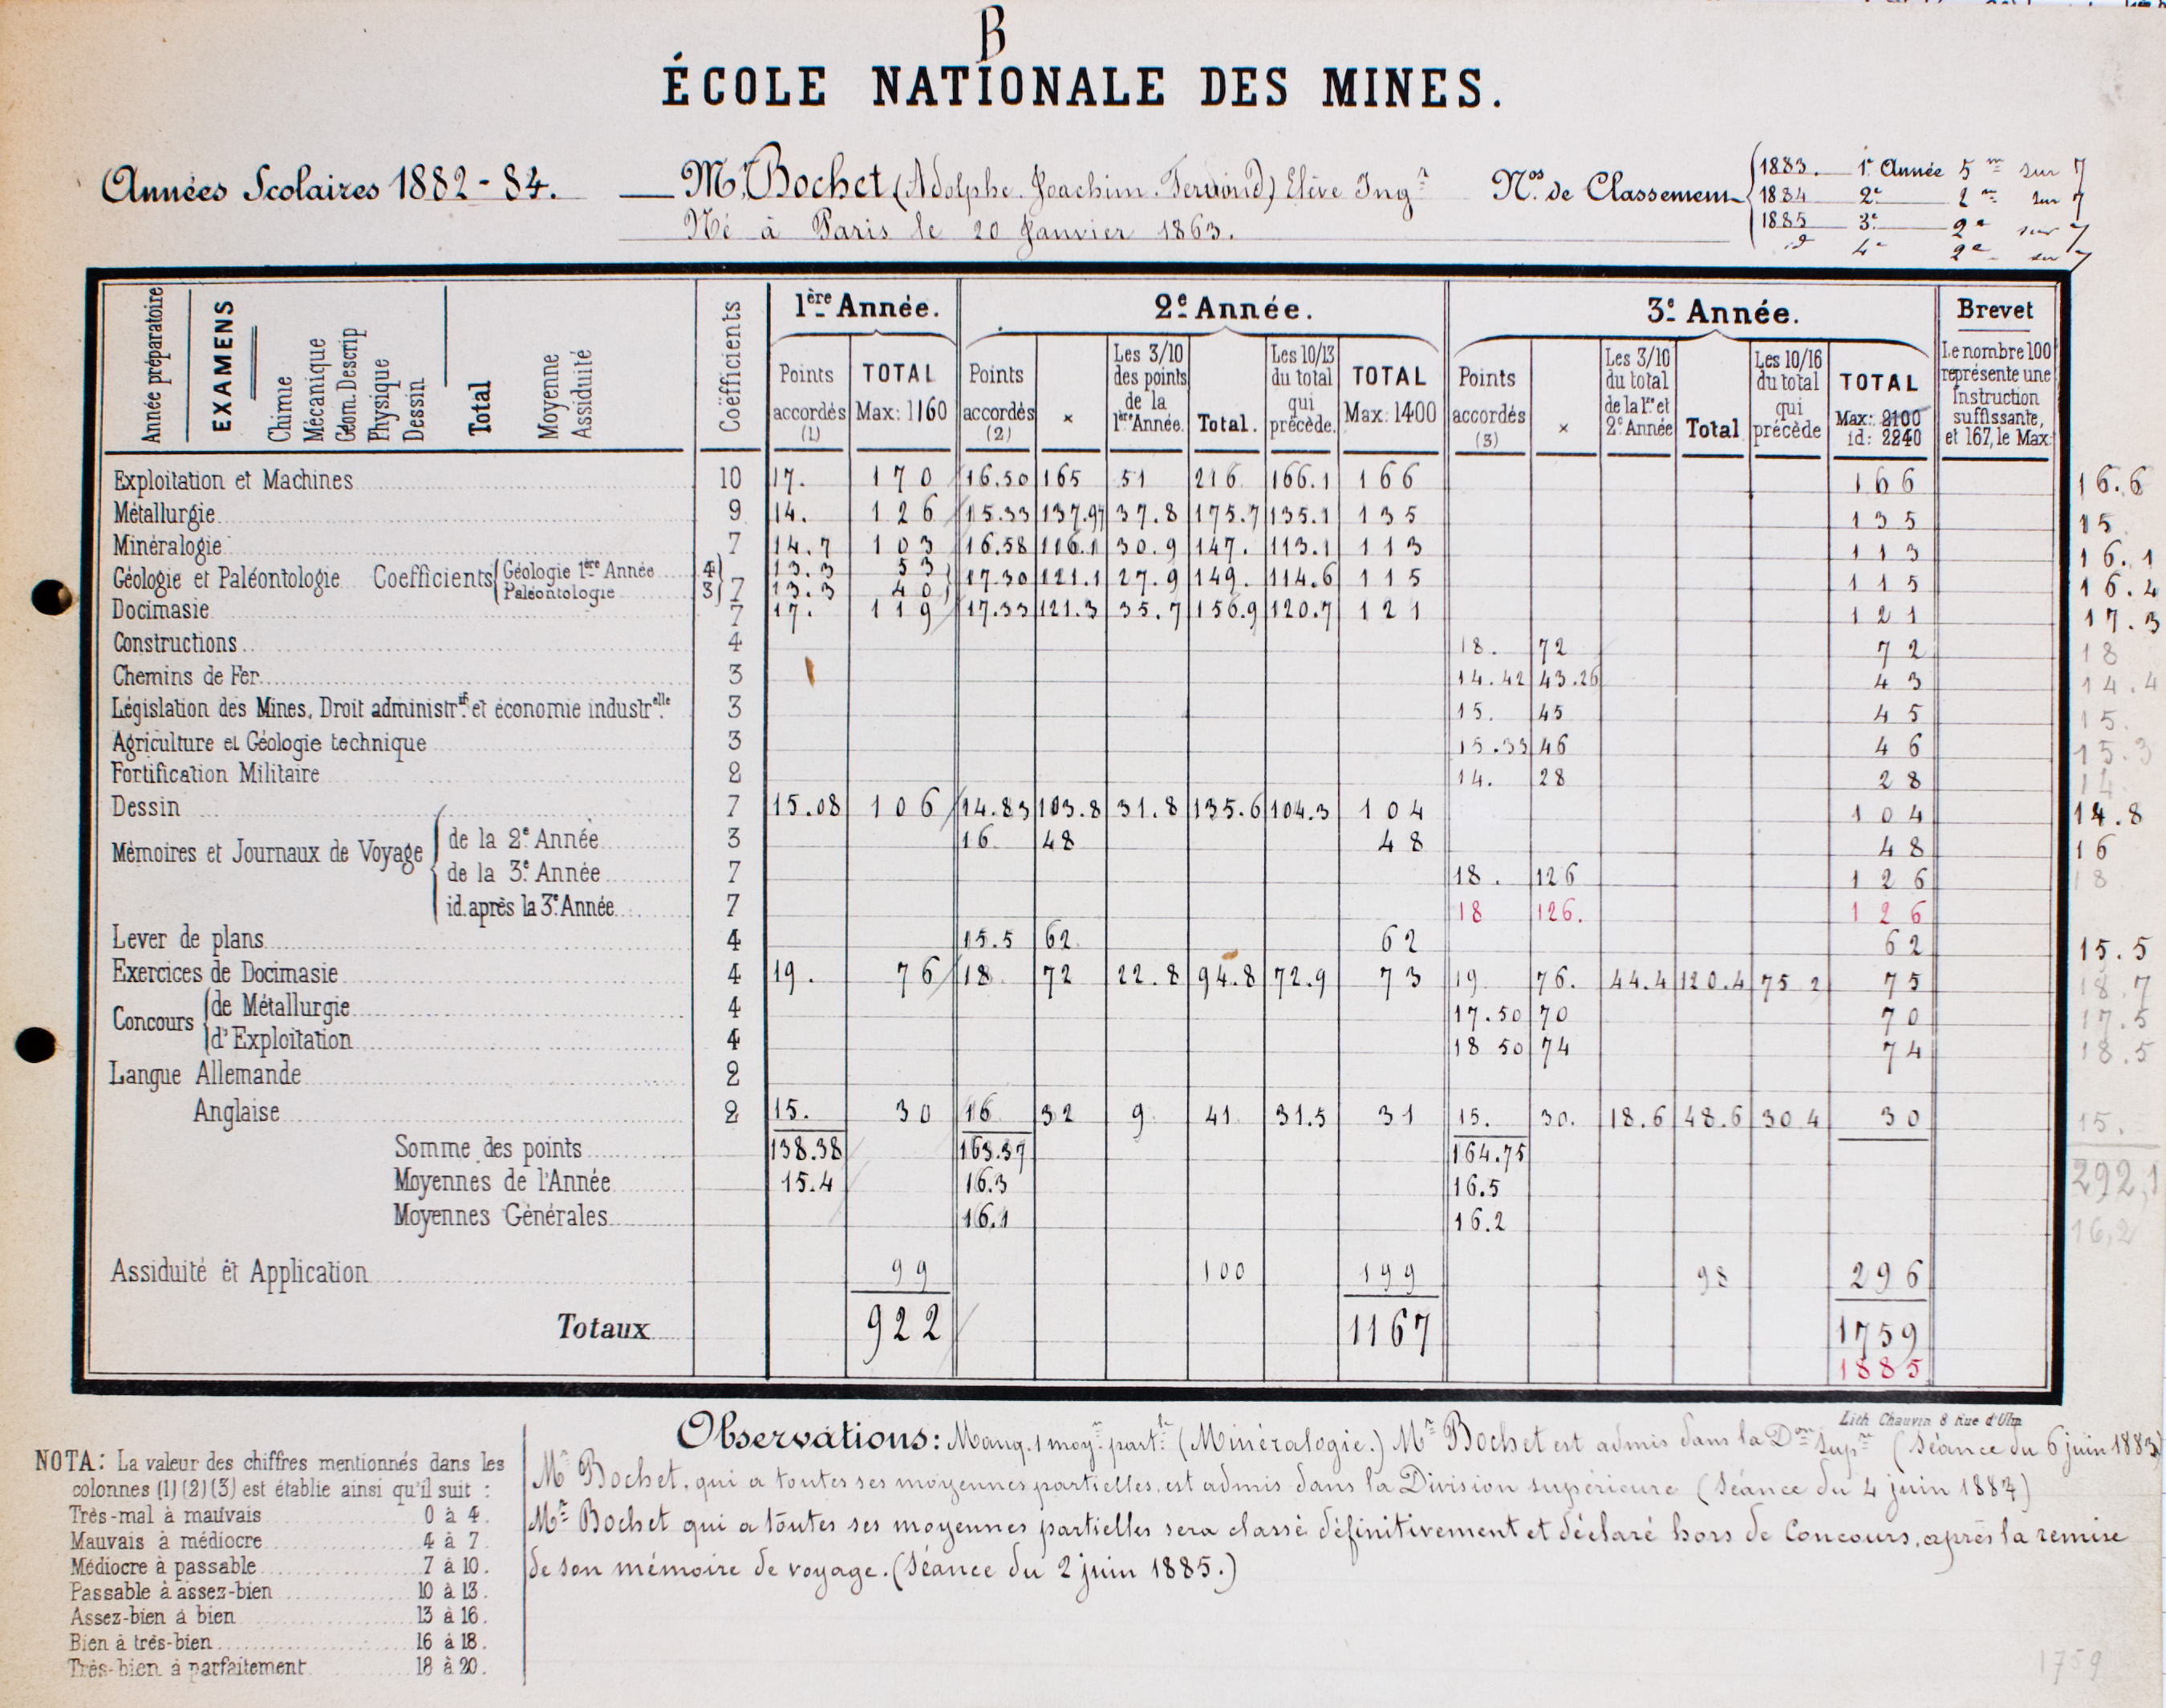 B
ÉCOLE NATIONALE DES MINES.
Années Scolaires 1882-84. Mr. Bochet (Adolphe. Joachim. Fernand) Elève Ingr
Né à Paris le 20 Janvier 1863.
Nos. de Classement
1883. 1e Année 5me sur 7
1884 2e 2me sur 7
1885 3e 2e sur 7
id 4e 2e sur 7
Année préparatoire EXAMENS Chimie Mécanique Géom. Descrip Physique Dessin Total Moyenne Assiduité
Coëfficients
1ère Année. 2e Année. 3e Année. Brevet
Points accordés (1) TOTAL Max: 1160
Points accordés (2) × Les 3/10 des points de la 1ère Année. Total. Les 10/13 du total qui précède. TOTAL Max: 1400
Points accordés (3) × Les 3/10 du total de la 1re et 2e Année Total Les 10/16 du total qui précède TOTAL Max: 2100 id: 2240
Le nombre 100 représente une Instruction suffissante, et 167, le Max:
Exploitation et Machines 10 17. 170 16.50 165 51 216 166.1 166 166 16.6
Métallurgie 9 14. 126 15.33 137.97 37.8 175.7 135.1 135 135 15
Minéralogie 7 14.7 103 16.58 116.1 30.9 147. 113.1 113 113 16.1
Géologie et Paléontologie Coefficients Géologie 1ère Année 4 13.3 53
Paléontologie 3 7 13.3 40 17.30 121.1 27.9 149. 114.6 115 115 16.4
Docimasie 7 17. 119 17.33 121.3 35.7 156.9 120.7 121 121 17.3
Constructions 4 18. 72 72 18
Chemins de Fer 3 14.42 43.26 43 14.4
Législation des Mines, Droit administrif. et économie industrelle. 3 15. 45 45 15.
Agriculture et Géologie technique 3 15.33 46 46 15.3
Fortification Militaire 2 14. 28 28 14
Dessin 7 15.08 106 14.83 103.8 31.8 135.6 104.3 104 104 14.8
Mémoires et Journaux de Voyage de la 2e Année 3 16 48 48 48 16
de la 3e Année 7 18. 126 126 18
id. après la 3e Année 7 18 126. 126
Lever de plans 4 15.5 62 62 62 15.5
Exercices de Docimasie 4 19. 76 18 72 22.8 94.8 72.9 73 19 76. 44.4 120.4 75 2 75 18.7
Concours de Métallurgie 4 17.50 70 70 17.5
d'Exploitation 4 18 50 74 74 18.5
Langue Allemande 2
Anglaise 2 15. 30 16 32 9 41 31.5 31 15. 30. 18.6 48.6 30 4 30 15.
Somme des points 138.38 163.37 164.75 292,1
Moyennes de l'Année 15.4 16.3 16.5
Moyennes Générales 16.1 16.2 16,2
Assiduité et Application 99 100 199 98 296
Totaux 922 1167 1759
1885
Lith. Chauvin 8 Rue d'Ulm
Observations: Manq. 1 moy. part. (Minéralogie.) Mr Bochet est admis dans la Don Supre (Séance du 6 juin 1883)
Mr Bochet, qui a toutes ses moyennes partielles, est admis dans la Division supérieure (Séance du 4 juin 1884)
Mr Bochet qui a toutes ses moyennes partielles sera classé définitivement et déclaré hors de Concours, après la remise
de son mémoire de voyage. (Séance du 2 juin 1885.)
NOTA: La valeur des chiffres mentionnés dans les
colonnes (1) (2) (3) est établie ainsi qu'il suit :
Très-mal à mauvais 0 à 4.
Mauvais à médiocre 4 à 7.
Médiocre à passable 7 à 10.
Passable à assez-bien 10 à 13.
Assez-bien à bien 13 à 16.
Bien à très-bien 16 à 18.
Très-bien à parfaitement 18 à 20.
1759